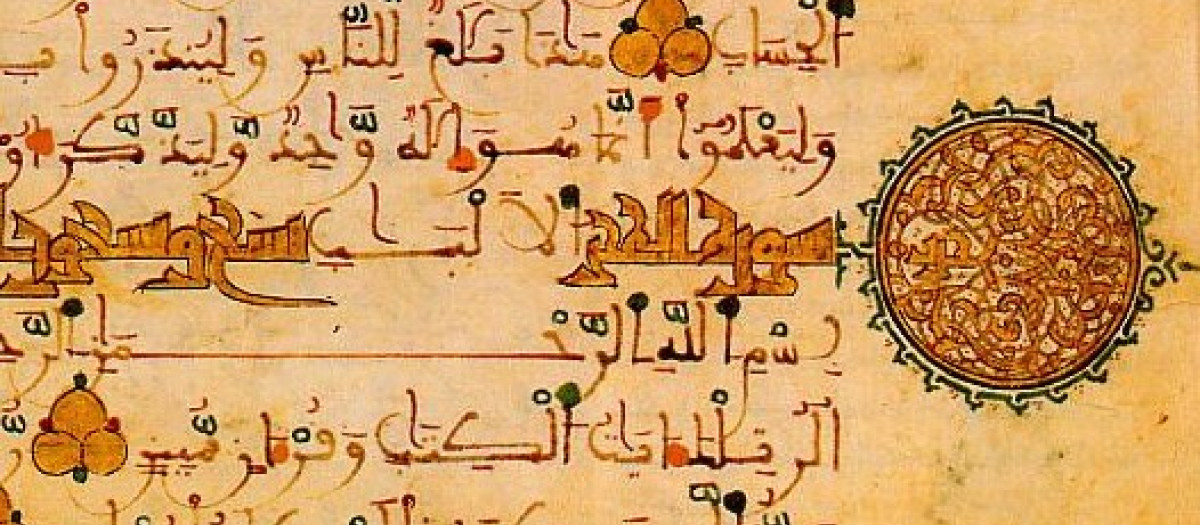 الْحِسَابِ هَٰذَا بَلَٰغٌ لِّلنَّاسِ وَلِيُنذَرُواْ بِ
وَلِيَعْلَمُوٓاْ أَنَّمَا هُوَ إِلَٰهٌ وَٰحِدٌ وَلِيَذَّكَّرَ أُوْ
سورة الحجر الْأَلْبَٰبِ تسع وتسعون
بِسْمِ اللَّهِ الرَّحْمَٰنِ الرَّح
الٓر تِلْكَ ءَايَٰتُ الْكِتَٰبِ وَقُرْءَانٍ مُّبِينٍ